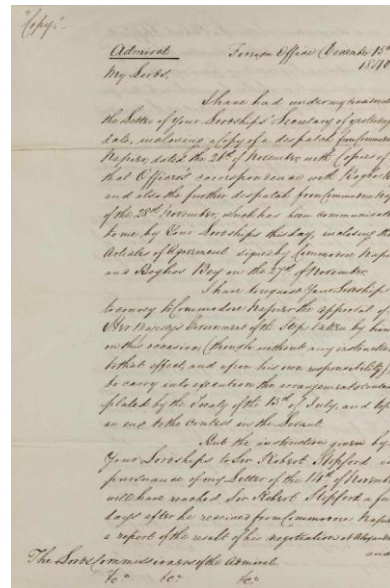 "Copy."
Admiral Foreign Office December 15th
1840
My Lords,
I have had under my
the Letter of Your Lordships' Secretary of
date, inclosing a Copy of a despatch from Commodore
Napier, dated the 26th of November, with Copies of
that Officer's correspondence with Boghos
and also the further despatch from Commodore
of the 28th November, which has been
to me by Your Lordships this day, inclosing the
Articles of Agreement signed by Commodore
and Boghos Bey on the 27th of November.
I have to request Your Lordships
to convey to Commodore Napier the approval of
Her Majesty's Government of the steps taken by him
on this occasion (though without any
to that effect, and upon his own responsibility)
to carry into execution the arrangements
plated by the Treaty of the 15th of July, and to
an end to the contest in the Levant.
But the instruction given by
Your Lordships to Sir Robert Stopford in
pursuance of my Letter of the 14th of
will have reached Sir Robert Stopford a few
days after he received from Commodore
a report of the result of his negotiation at
and
The Lords Commissioners of the Admiral.
&c. &c. &c.